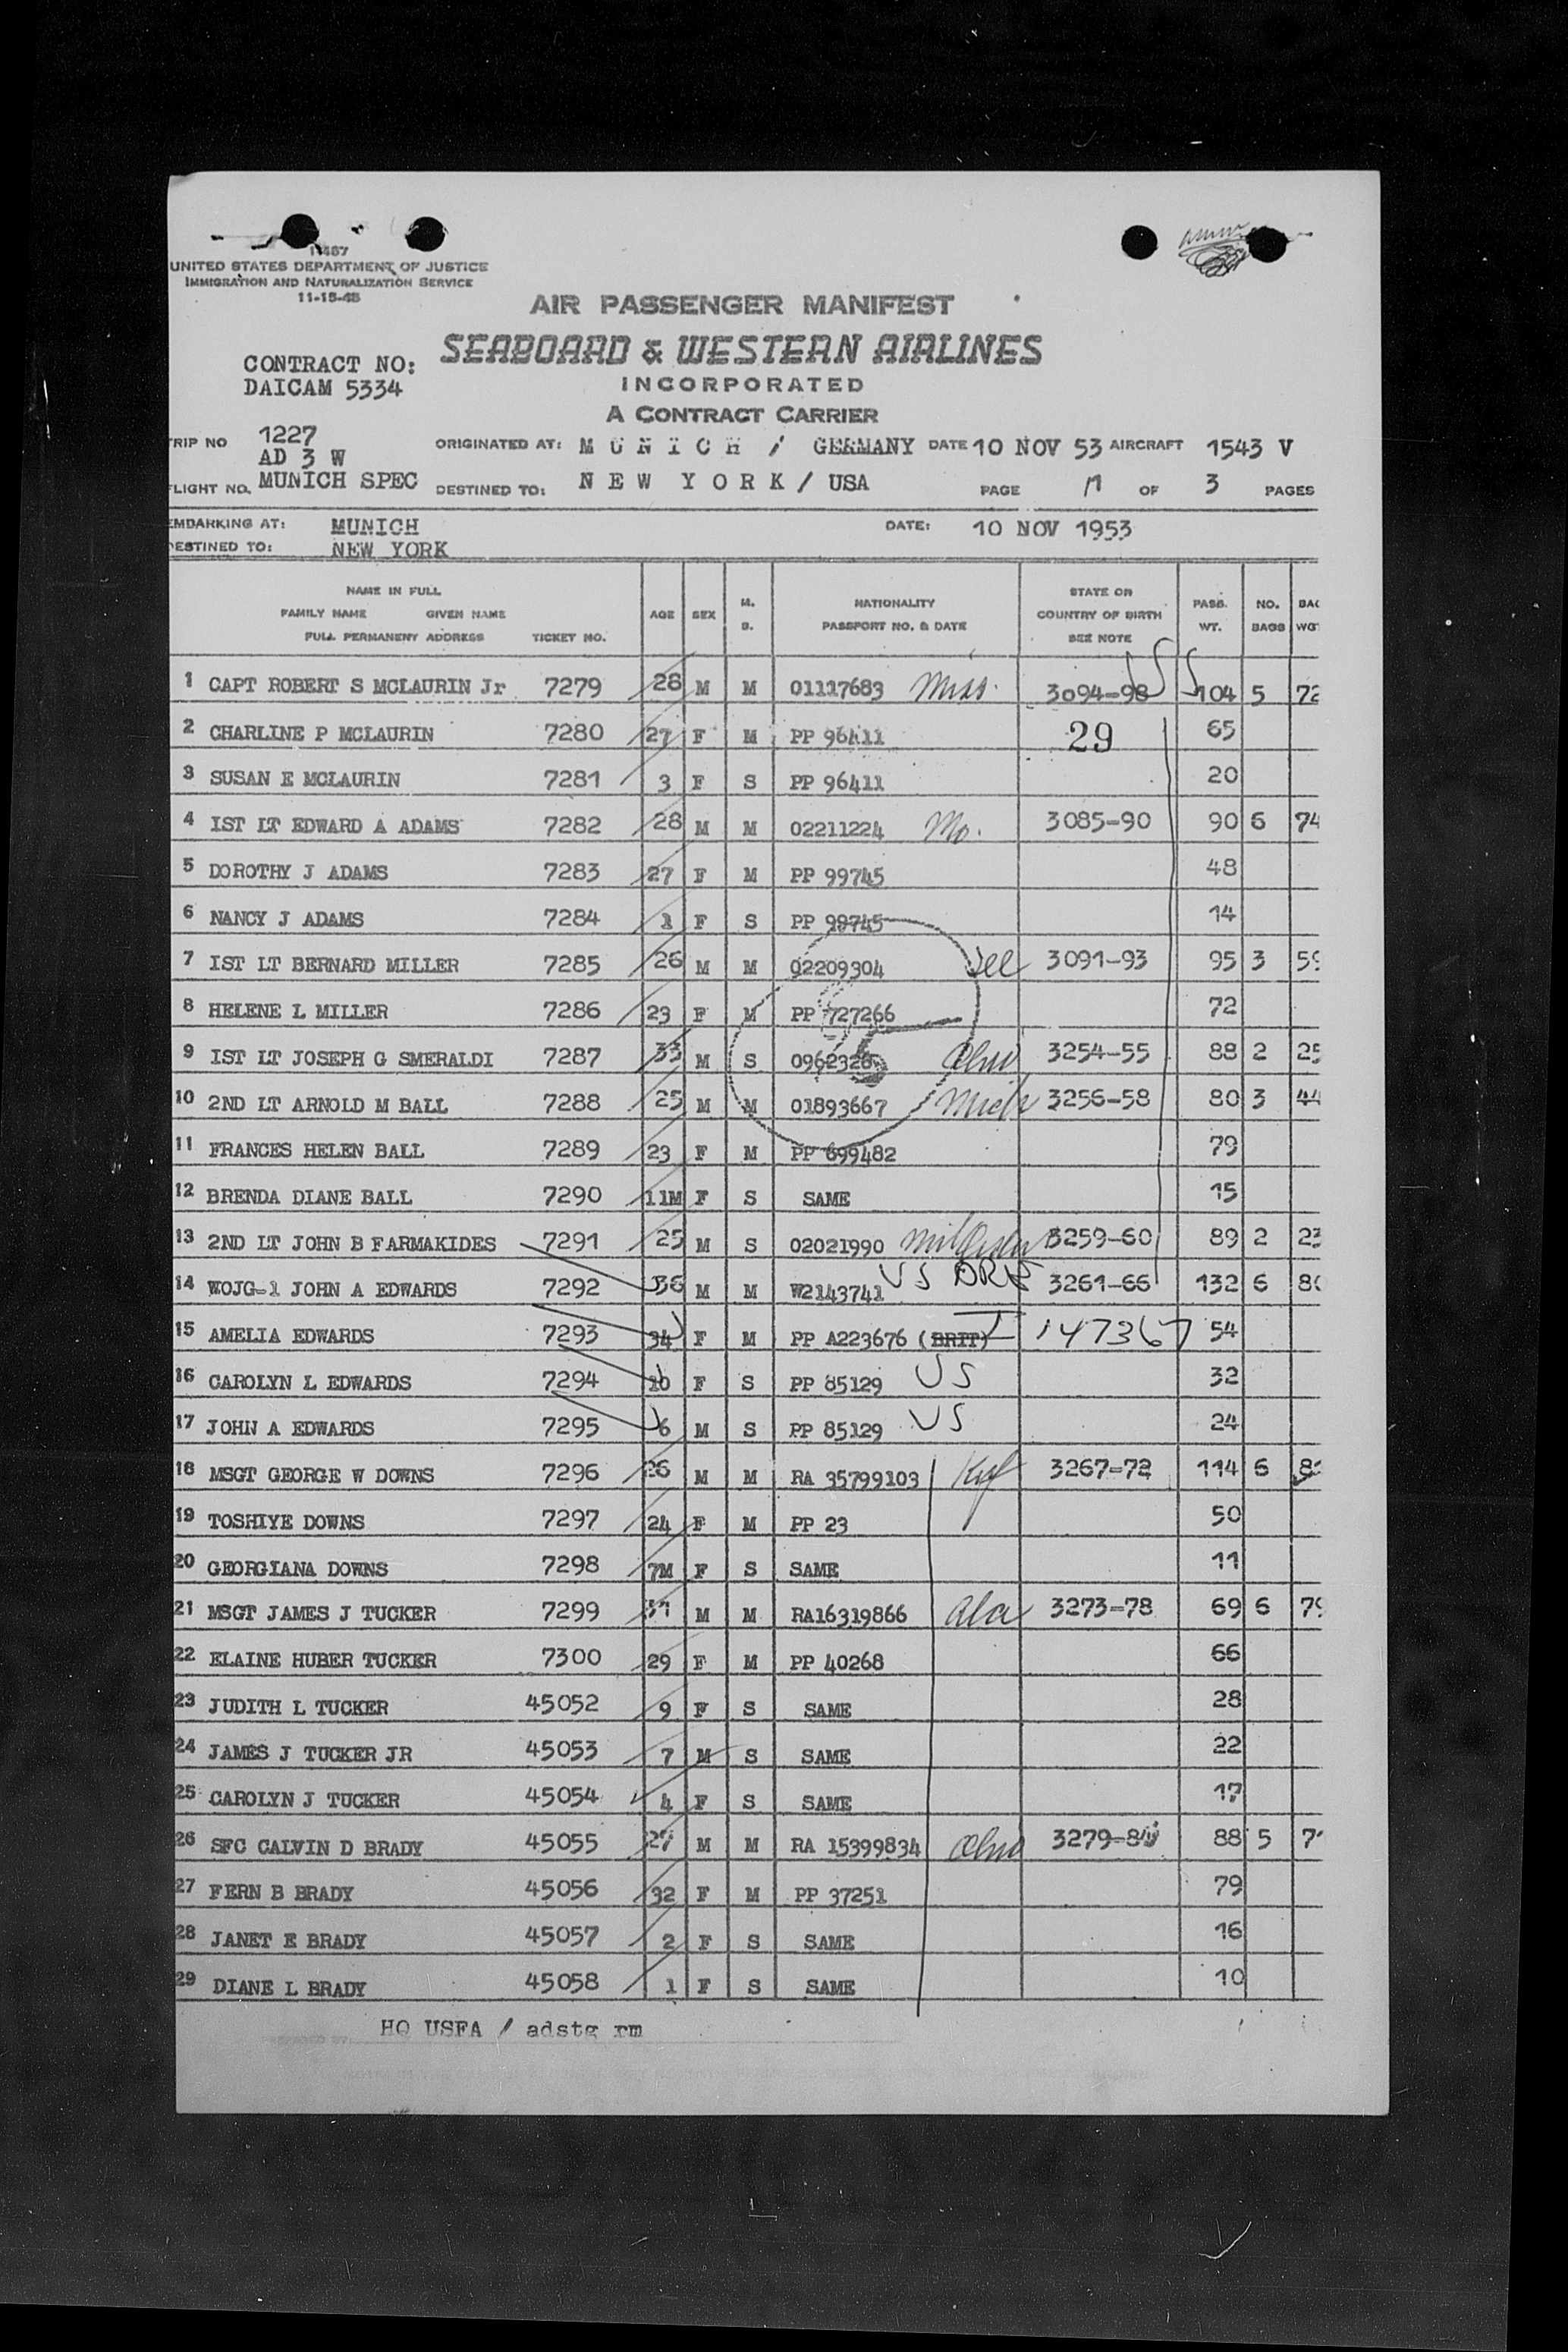 11487
UNITED STATES DEPARTMENT OF JUSTICE
IMMIGRATION AND NATURALIZATION SERVICE
11-15-48
AIR PASSENGER MANIFEST
SEABOARD & WESTERN AIRLINES
INCORPORATED
A CONTRACT CARRIER
CONTRACT NO:
DAICAM 5334
RIP NO 1227 ORIGINATED AT: MUNICH / GERMANY DATE 10 NOV 53 AIRCRAFT 1543 V
AD 3 W
LIGHT NO. MUNICH SPEC DESTINED TO: NEW YORK / USA PAGE 1 OF 3 PAGES
EMBARKING AT: MUNICH DATE: 10 NOV 1953
DESTINED TO: NEW YORK
NAME IN FULL
FAMILY NAME GIVEN NAME
FULL PERMANENT ADDRESS TICKET NO. AGE SEX M. S. NATIONALITY PASSPORT NO. & DATE STATE OR COUNTRY OF BIRTH SEE NOTE PASS. WT. NO. BAGS BAG WGT
1 CAPT ROBERT S MCLAURIN Jr 7279 28 M M 01117683 Miss. 3094-98 104 5 72
2 CHARLINE P MCLAURIN 7280 27 F M PP 96411 29 65
3 SUSAN E MCLAURIN 7281 3 F S PP 96411 20
4 IST LT EDWARD A ADAMS 7282 28 M M 02211224 Mo. 3085-90 90 6 74
5 DOROTHY J ADAMS 7283 27 F M PP 99745 48
6 NANCY J ADAMS 7284 1 F S PP 99745 14
7 IST LT BERNARD MILLER 7285 26 M M 02209304 3091-93 95 3 59
8 HELENE L MILLER 7286 23 F M PP 727266 72
9 IST LT JOSEPH G SMERALDI 7287 33 M S 0962328 Ohio 3254-55 88 2 25
10 2ND LT ARNOLD M BALL 7288 25 M M 01893667 Mich 3256-58 80 3 44
11 FRANCES HELEN BALL 7289 23 F M PP 699482 79
12 BRENDA DIANE BALL 7290 11M F S SAME 15
13 2ND LT JOHN B FARMAKIDES 7291 25 M S 02021990 3259-60 89 2 23
14 WOJG-1 JOHN A EDWARDS 7292 36 M M W2143741 US 3261-66 132 6 80
15 AMELIA EDWARDS 7293 34 F M PP A223676 (BRIT) 147367 54
16 CAROLYN L EDWARDS 7294 10 F S PP 85129 US 32
17 JOHN A EDWARDS 7295 6 M S PP 85129 US 24
18 MSGT GEORGE W DOWNS 7296 26 M M RA 35799103 Ky 3267-72 114 6
19 TOSHIYE DOWNS 7297 24 F M PP 23 50
20 GEORGIANA DOWNS 7298 7M F S SAME 11
21 MSGT JAMES J TUCKER 7299 31 M M RA16319866 Ala 3273-78 69 6 79
22 ELAINE HUBER TUCKER 7300 29 F M PP 40268 66
23 JUDITH L TUCKER 45052 9 F S SAME 28
24 JAMES J TUCKER JR 45053 7 M S SAME 22
25 CAROLYN J TUCKER 45054 4 F S SAME 17
26 SFC CALVIN D BRADY 45055 27 M M RA 15399834 Ohio 3279-84 88 5 71
27 FERN B BRADY 45056 32 F M PP 37251 79
28 JANET E BRADY 45057 2 F S SAME 16
29 DIANE L BRADY 45058 1 F S SAME 10
HQ USFA / adstg rm